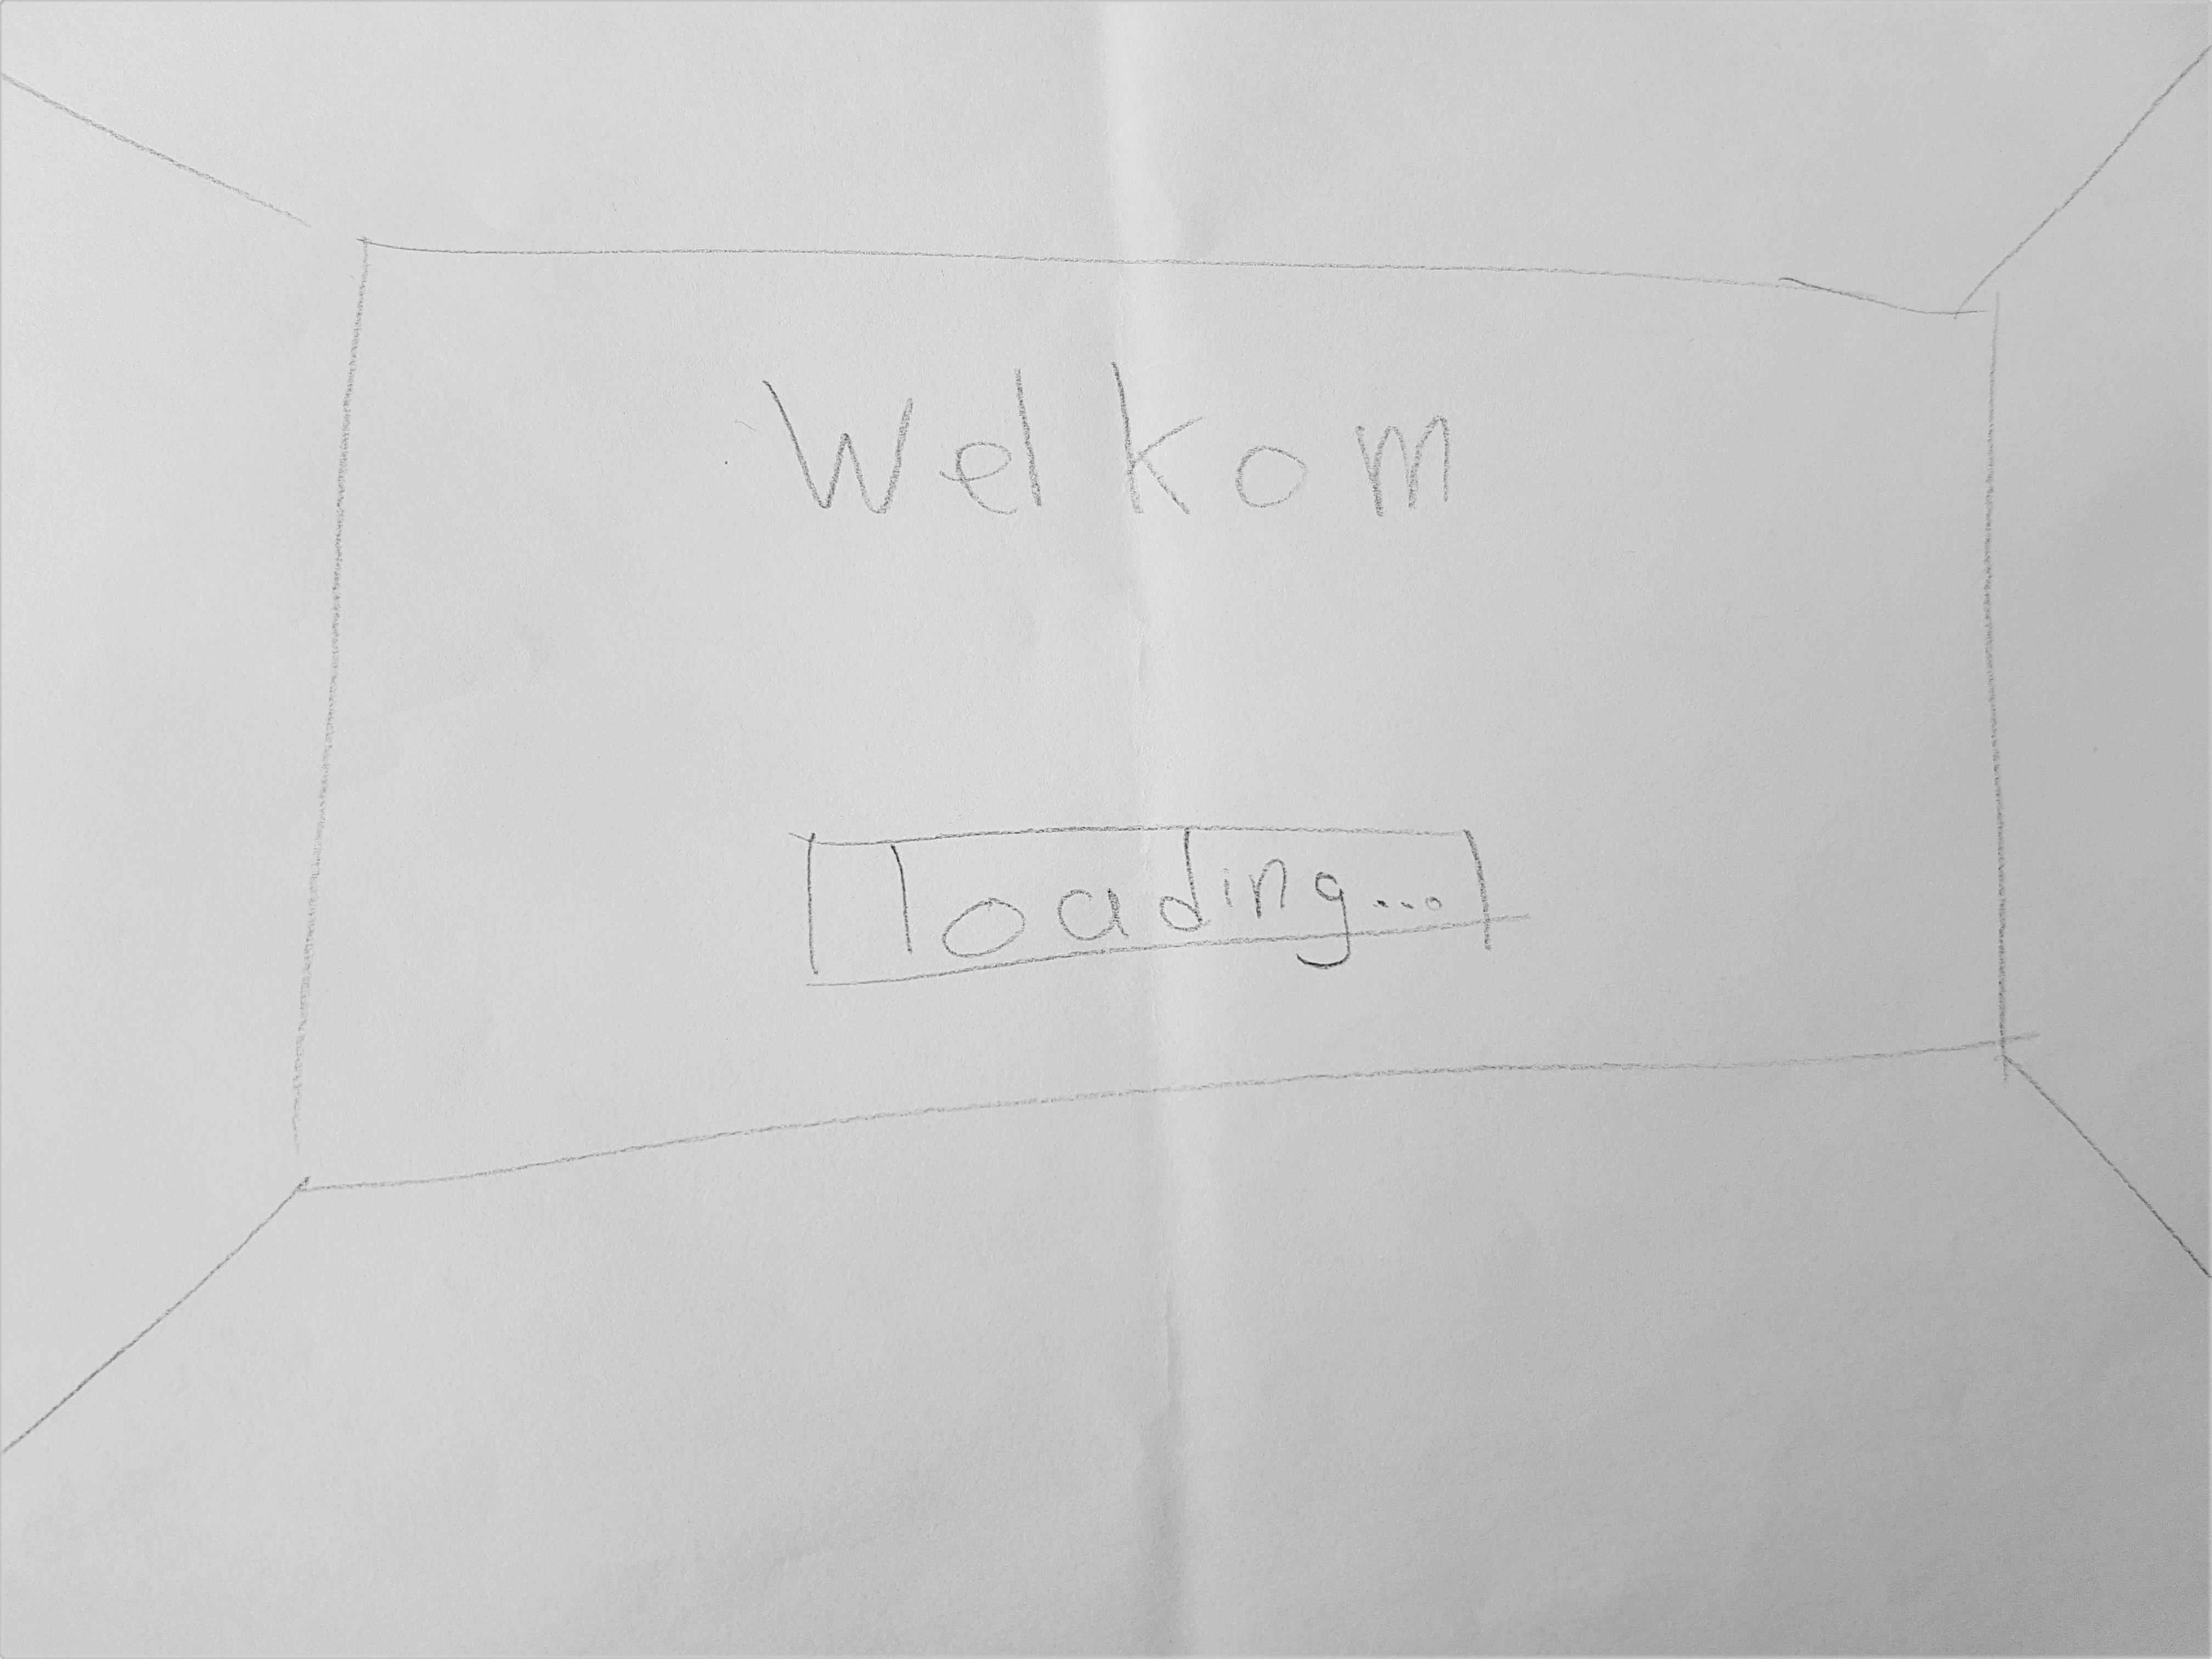 Welkom
loading...